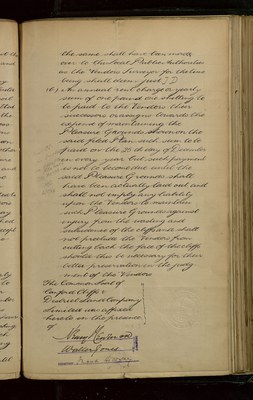 the same shall have been made
over to the Local Public Authorities
as the Vendors Surveyor for the time
being shall deem just
16) An annual rent charge or yearly
sum of one pound one shilling to
be paid to the Vendors their
successors or assigns towards the
expense of maintaining the
Pleasure Grounds shewn on the
said filed Plan such sum to be
paid on the 25th day of December
in every year but such payment
is not to become due until the
said Pleasure Grounds shall
have been actually laid out and
shall not imply any liability
upon the Vendors to maintain
such Pleasure Grounds against
injury from the wasting and
subsidence of the cliff and shall
not preclude the Vendors from
cutting back the face of the cliffs
should this be necessary for their
better preservation in the judg
ment of the Vendors
The Common Seal of
Canford Cliffs
District Land Company
Limited was affixed
hereto in the presence
of
Walter Jones